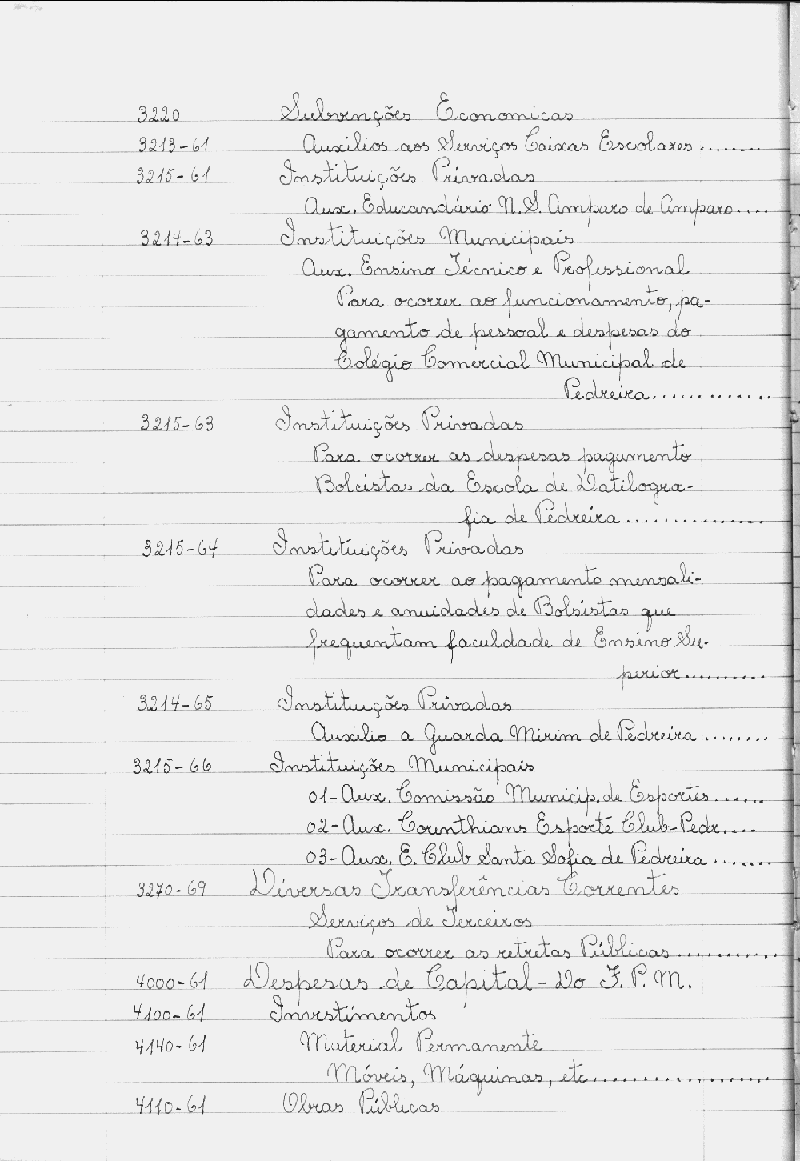 3220 Subvenções Economicas
3213-61 Auxilios aos Serviços Caixas Escolares........
3215-61 Instituições Privadas
Aux. Educandário N. S. Amparo de Amparo....
3214-63 Instituições Municipais
Aux. Ensino Técnico e Profissional
Para ocorrer ao funcionamento, pa-
gamento de pessoal e despesas do
Colégio Comercial Municipal de
Pedreira.............
3215-63 Instituições Privadas
Para ocorrer as despesas pagamento
Bolcistas da Escola de Datilogra-
fia de Pedreira...............
3215-64 Instituições Privadas
Para ocorrer ao pagamento mensali-
dades e anuidades de Bolsistas que
frequentam faculdade de Ensino Su-
perior..........
3214-65 Instituições Privadas
Auxilio a Guarda Mirim de Pedreira ........
3215-66 Instituições Municipais
01-Aux. Comissão Municip. de Esportes......
02-Aux. Corinthians Esporte Club-Pedr....
03-Aux. E. Club Santa Sofia de Pedreira.......
3270-69 Diversas Transferências Correntes
Serviços de Terceiros
Para ocorrer as retretas Públicas............
4000-61 Despesas de Capital - Do F. P. M.
4100-61 Investimentos
4140-61 Material Permanente
Móveis, Máquinas, etc...................
4110-61 Obras Públicas